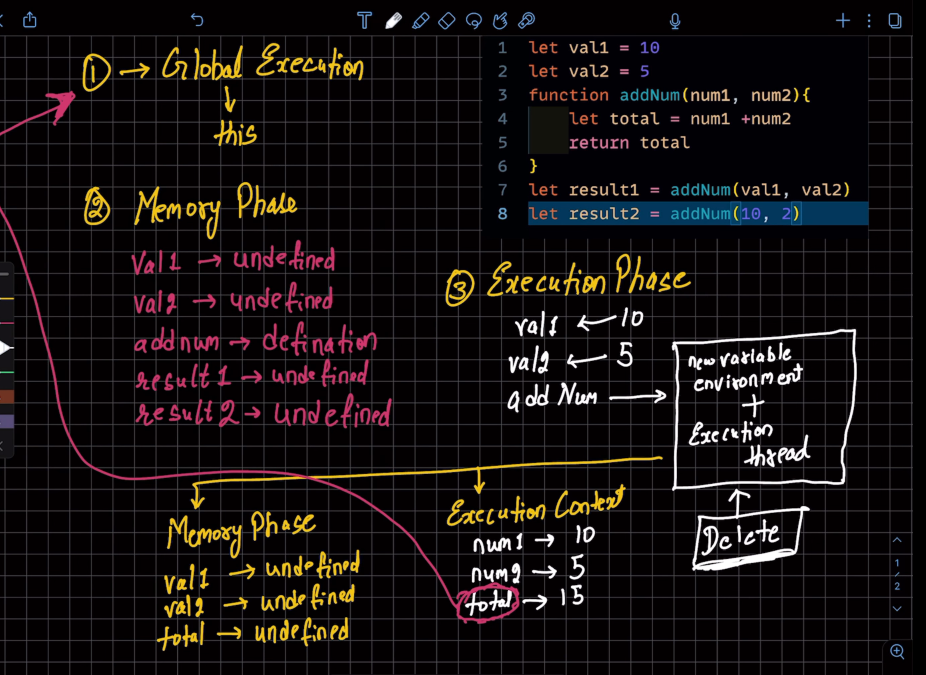 ① → Global Execution
↓
this
1 let val1 = 10
2 let val2 = 5
3 function addNum(num1, num2){
4 let total = num1 +num2
5 return total
6 }
7 let result1 = addNum(val1, val2)
8 let result2 = addNum(10, 2)
② Memory Phase
Val1 → undefined
val2 → undefined
addnum → defination
result1 → undefined
result2 → undefined
③ Execution Phase
val1 ← 10
val2 ← 5
add Num →
new variable
environment
+
Execution
thread
Delete
Memory Phase
val1 → undefined
val2 → undefined
total → undefined
Execution Context
num1 → 10
num2 → 5
total → 15
1
2